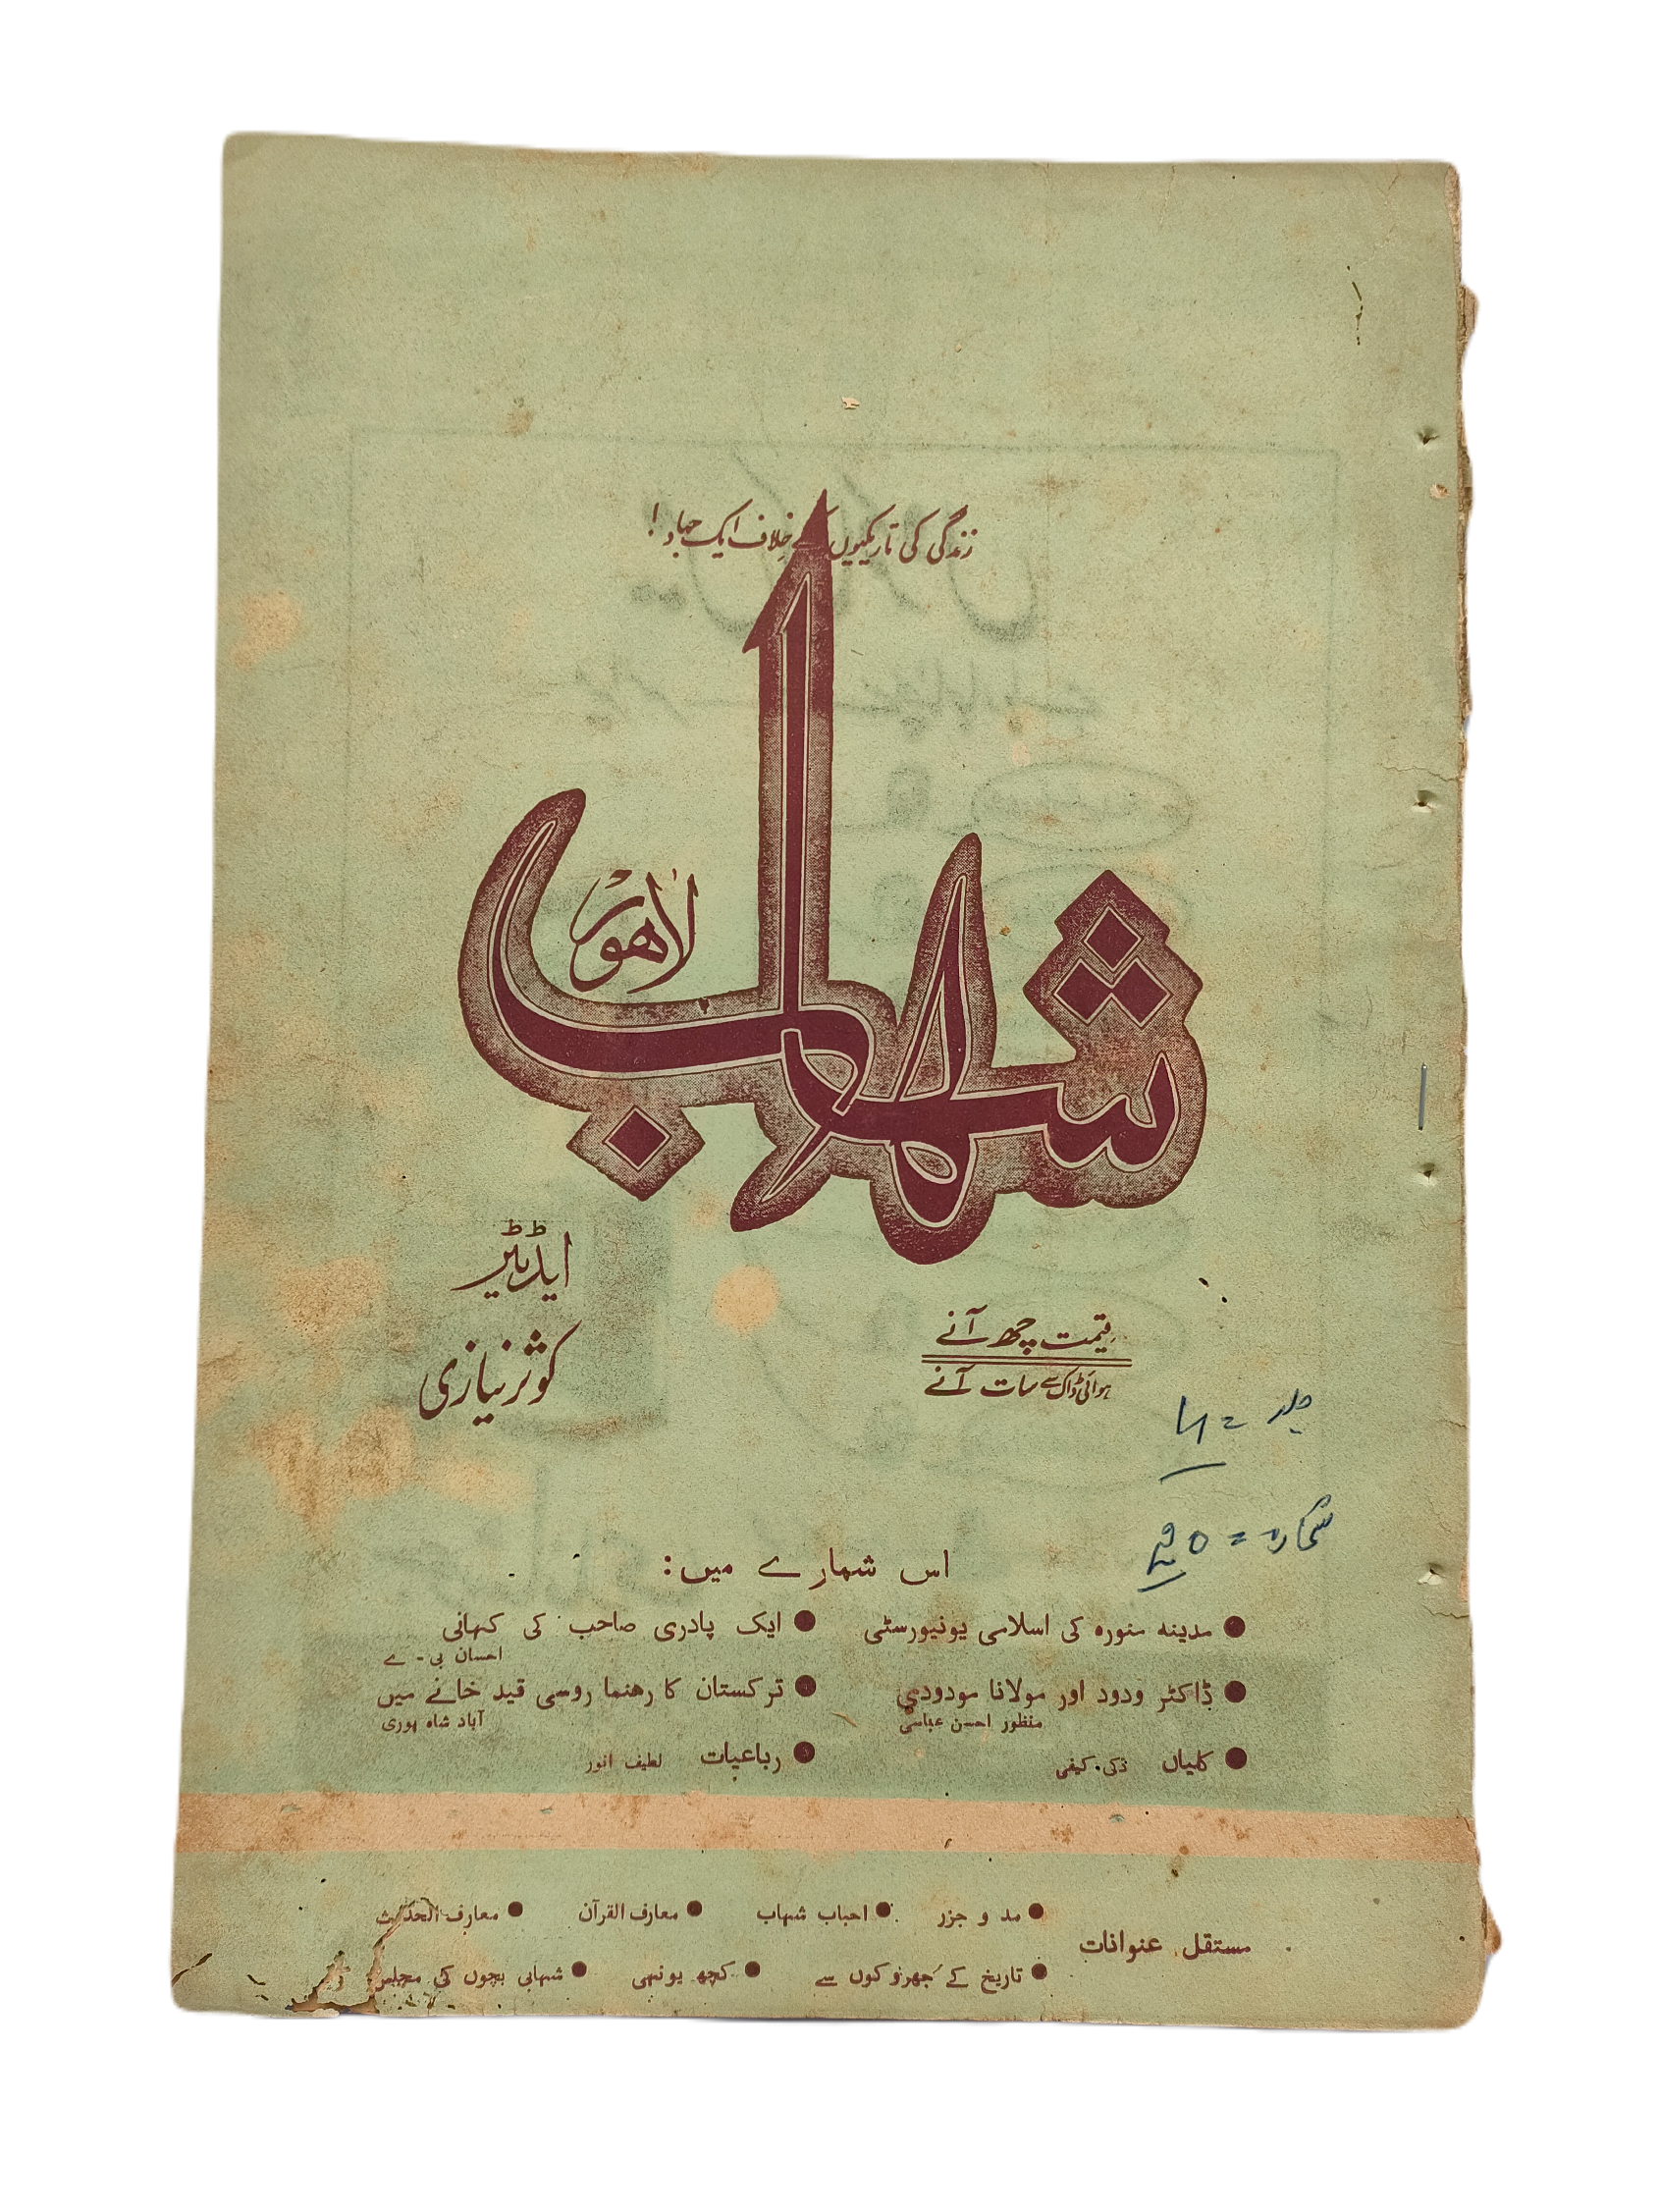 زندگی کی تاریکیوں کے خلاف ایک جہاد!
شہاب
لاہور
ایڈیٹر
کوثر نیازی
قیمت چھ آنے
ہوائی ڈاک سے سات آنے
جلد =
شمارہ =
اس شمارے میں:
● مدینہ منورہ کی اسلامی یونیورسٹی
● ایک پادری صاحب کی کہانی
احسان بی - اے
● ڈاکٹر ودود اور مولانا مودودی
منظور احسن عباسی
● ترکستان کا رہنما روسی قید خانے میں
آباد شاہ پوری
● کلیاں ذکی کیفی
● رباعیات لطیف انور
مستقل عنوانات
● مد و جزر ● احباب شہاب ● معارف القرآن ● معارف الحدیث
● تاریخ کے جھروکوں سے ● کچھ یونہی ● شہابی بچوں کی مجلس